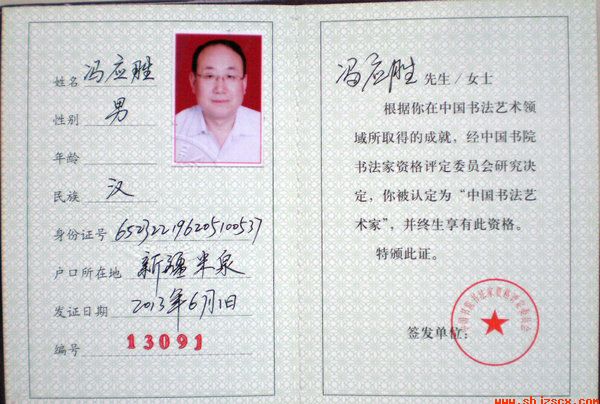 姓名 冯应胜
性别 男
年龄
民族 汉
身份证号 652322196205100537
户口所在地 新疆米泉
发证日期 2013年6月1日
编号 13091
冯应胜 先生/女士
根据你在中国书法艺术领
域所取得的成就，经中国书院
书法家资格评定委员会研究决
定，你被认定为“中国书法艺
术家”，并终生享有此资格。
特颁此证。
签发单位：
中国书院书法家资格评定委员会